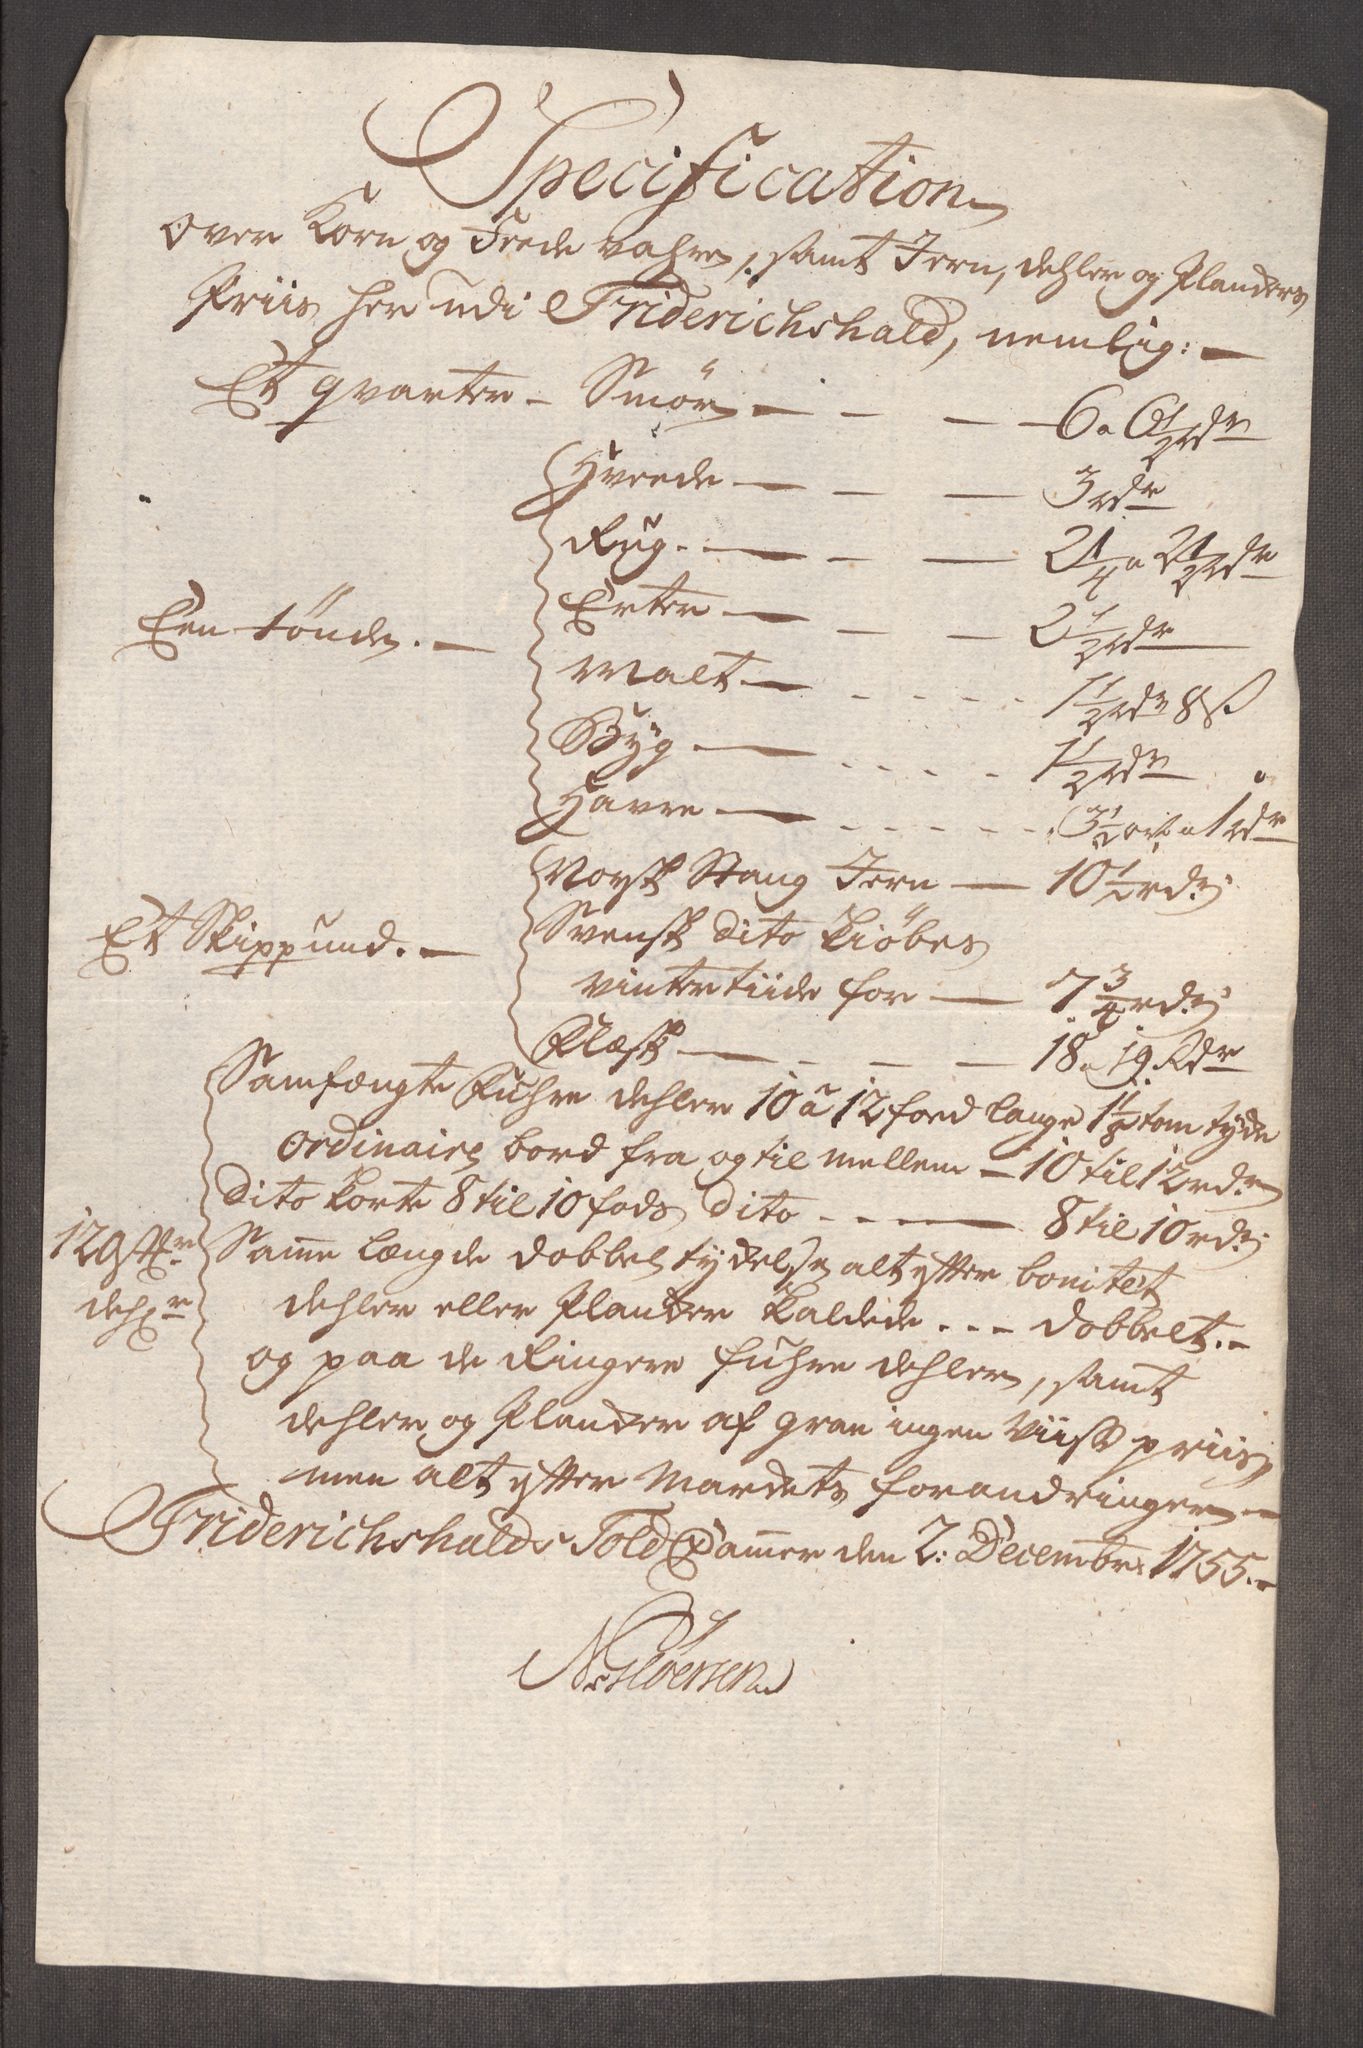 Specification
over Korn og Feede vahre, samt Jern, dehler og Planckers
Priis her udi Friderichshald, nemlig:
Et qvarter - Smør - - - 6 a 6 1/2 rdr
Hveede - - - 3 rdr
Rug - - - 2 1/4 a 2 1/2 rdr
Erter - - - 2 1/2 rdr
Een tønde. - Malt - - - 1 1/2 rdr 8 ß
Byg - - - 1 1/2 rdr
Havre - - - 3 1/2 ort a 1 rdr
Norsk Stang Jern - 10 1/2 rdr
Et Skippund. - Svensk dito kiøbes
vintertiide for - 7 3/4 rdr
Flæsk - - - 18 a 19 Rdr
Samfængte Fuhre dehler 10 à 12 foed lange 1 1/8 tom tyde
ordinaire bord fra og til mellem - 10 til 12 rdr
dito korte 8 til 10 fods dito - - - 8 til 10 rdr
Samme længde dobbel tydelse alt ytter bonitet
dehler eller Plancker kaldede - - - dobbelt. -
og paa de Ringere fuhre dehler, samt
dehler og Plancker af gran ingen viiss priis,
men alt ytter Marckets forandringer -
Friderichshalds Told Cammer den 2: Decembr: 1755. -